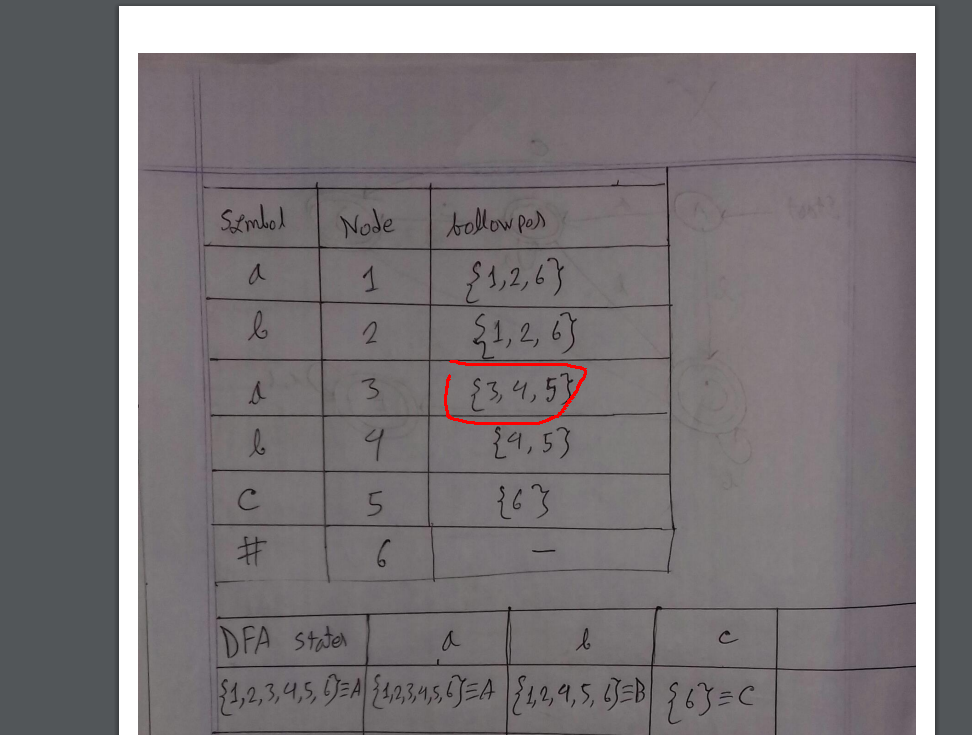 Symbol Node followpos
a 1 {1,2,6}
b 2 {1, 2, 6}
a 3 {3, 4, 5}
b 4 {4, 5}
C 5 {6}
# 6 —
DFA states a b c
{1,2,3,4,5,6}≡A {1,2,3,4,5,6}≡A {1,2,4,5,6}≡B {6}≡C